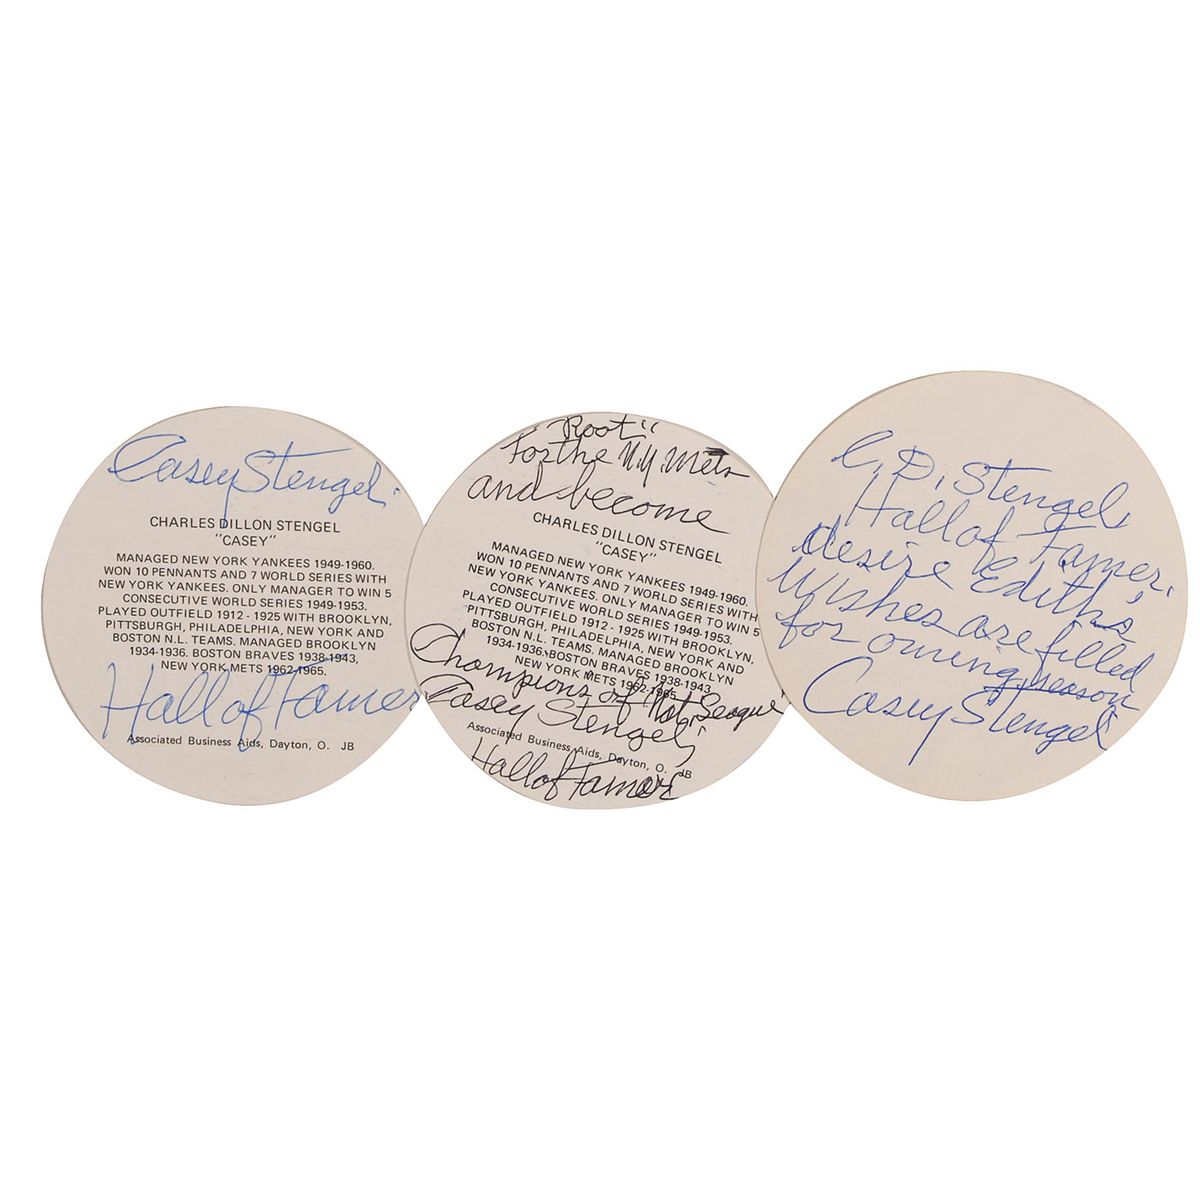 Casey Stengel.
CHARLES DILLON STENGEL
"CASEY"
MANAGED NEW YORK YANKEES 1949-1960.
WON 10 PENNANTS AND 7 WORLD SERIES WITH
NEW YORK YANKEES. ONLY MANAGER TO WIN 5
CONSECUTIVE WORLD SERIES 1949-1953.
PLAYED OUTFIELD 1912 - 1925 WITH BROOKLYN,
PITTSBURGH, PHILADELPHIA, NEW YORK AND
BOSTON N.L. TEAMS. MANAGED BROOKLYN
1934-1936. BOSTON BRAVES 1938-1943,
NEW YORK METS 1962-1965.
Hall of Famer
Associated Business Aids, Dayton, O. JB
"Root"
for the N.Y. Mets
and become
CHARLES DILLON STENGEL
"CASEY"
MANAGED NEW YORK YANKEES 1949-1960.
WON 10 PENNANTS AND 7 WORLD SERIES WITH
NEW YORK YANKEES. ONLY MANAGER TO WIN 5
CONSECUTIVE WORLD SERIES 1949-1953.
PLAYED OUTFIELD 1912 - 1925 WITH BROOKLYN,
PITTSBURGH, PHILADELPHIA, NEW YORK AND
BOSTON N.L. TEAMS. MANAGED BROOKLYN
1934-1936. BOSTON BRAVES 1938-1943,
NEW YORK METS 1962-1965.
Champions of Nat. League
Casey Stengel
Associated Business Aids, Dayton, O. JB
Hall of Famer
C. D. Stengel
Hall of Famer.
desire Edith's
Wishes are filled
for season
Casey Stengel